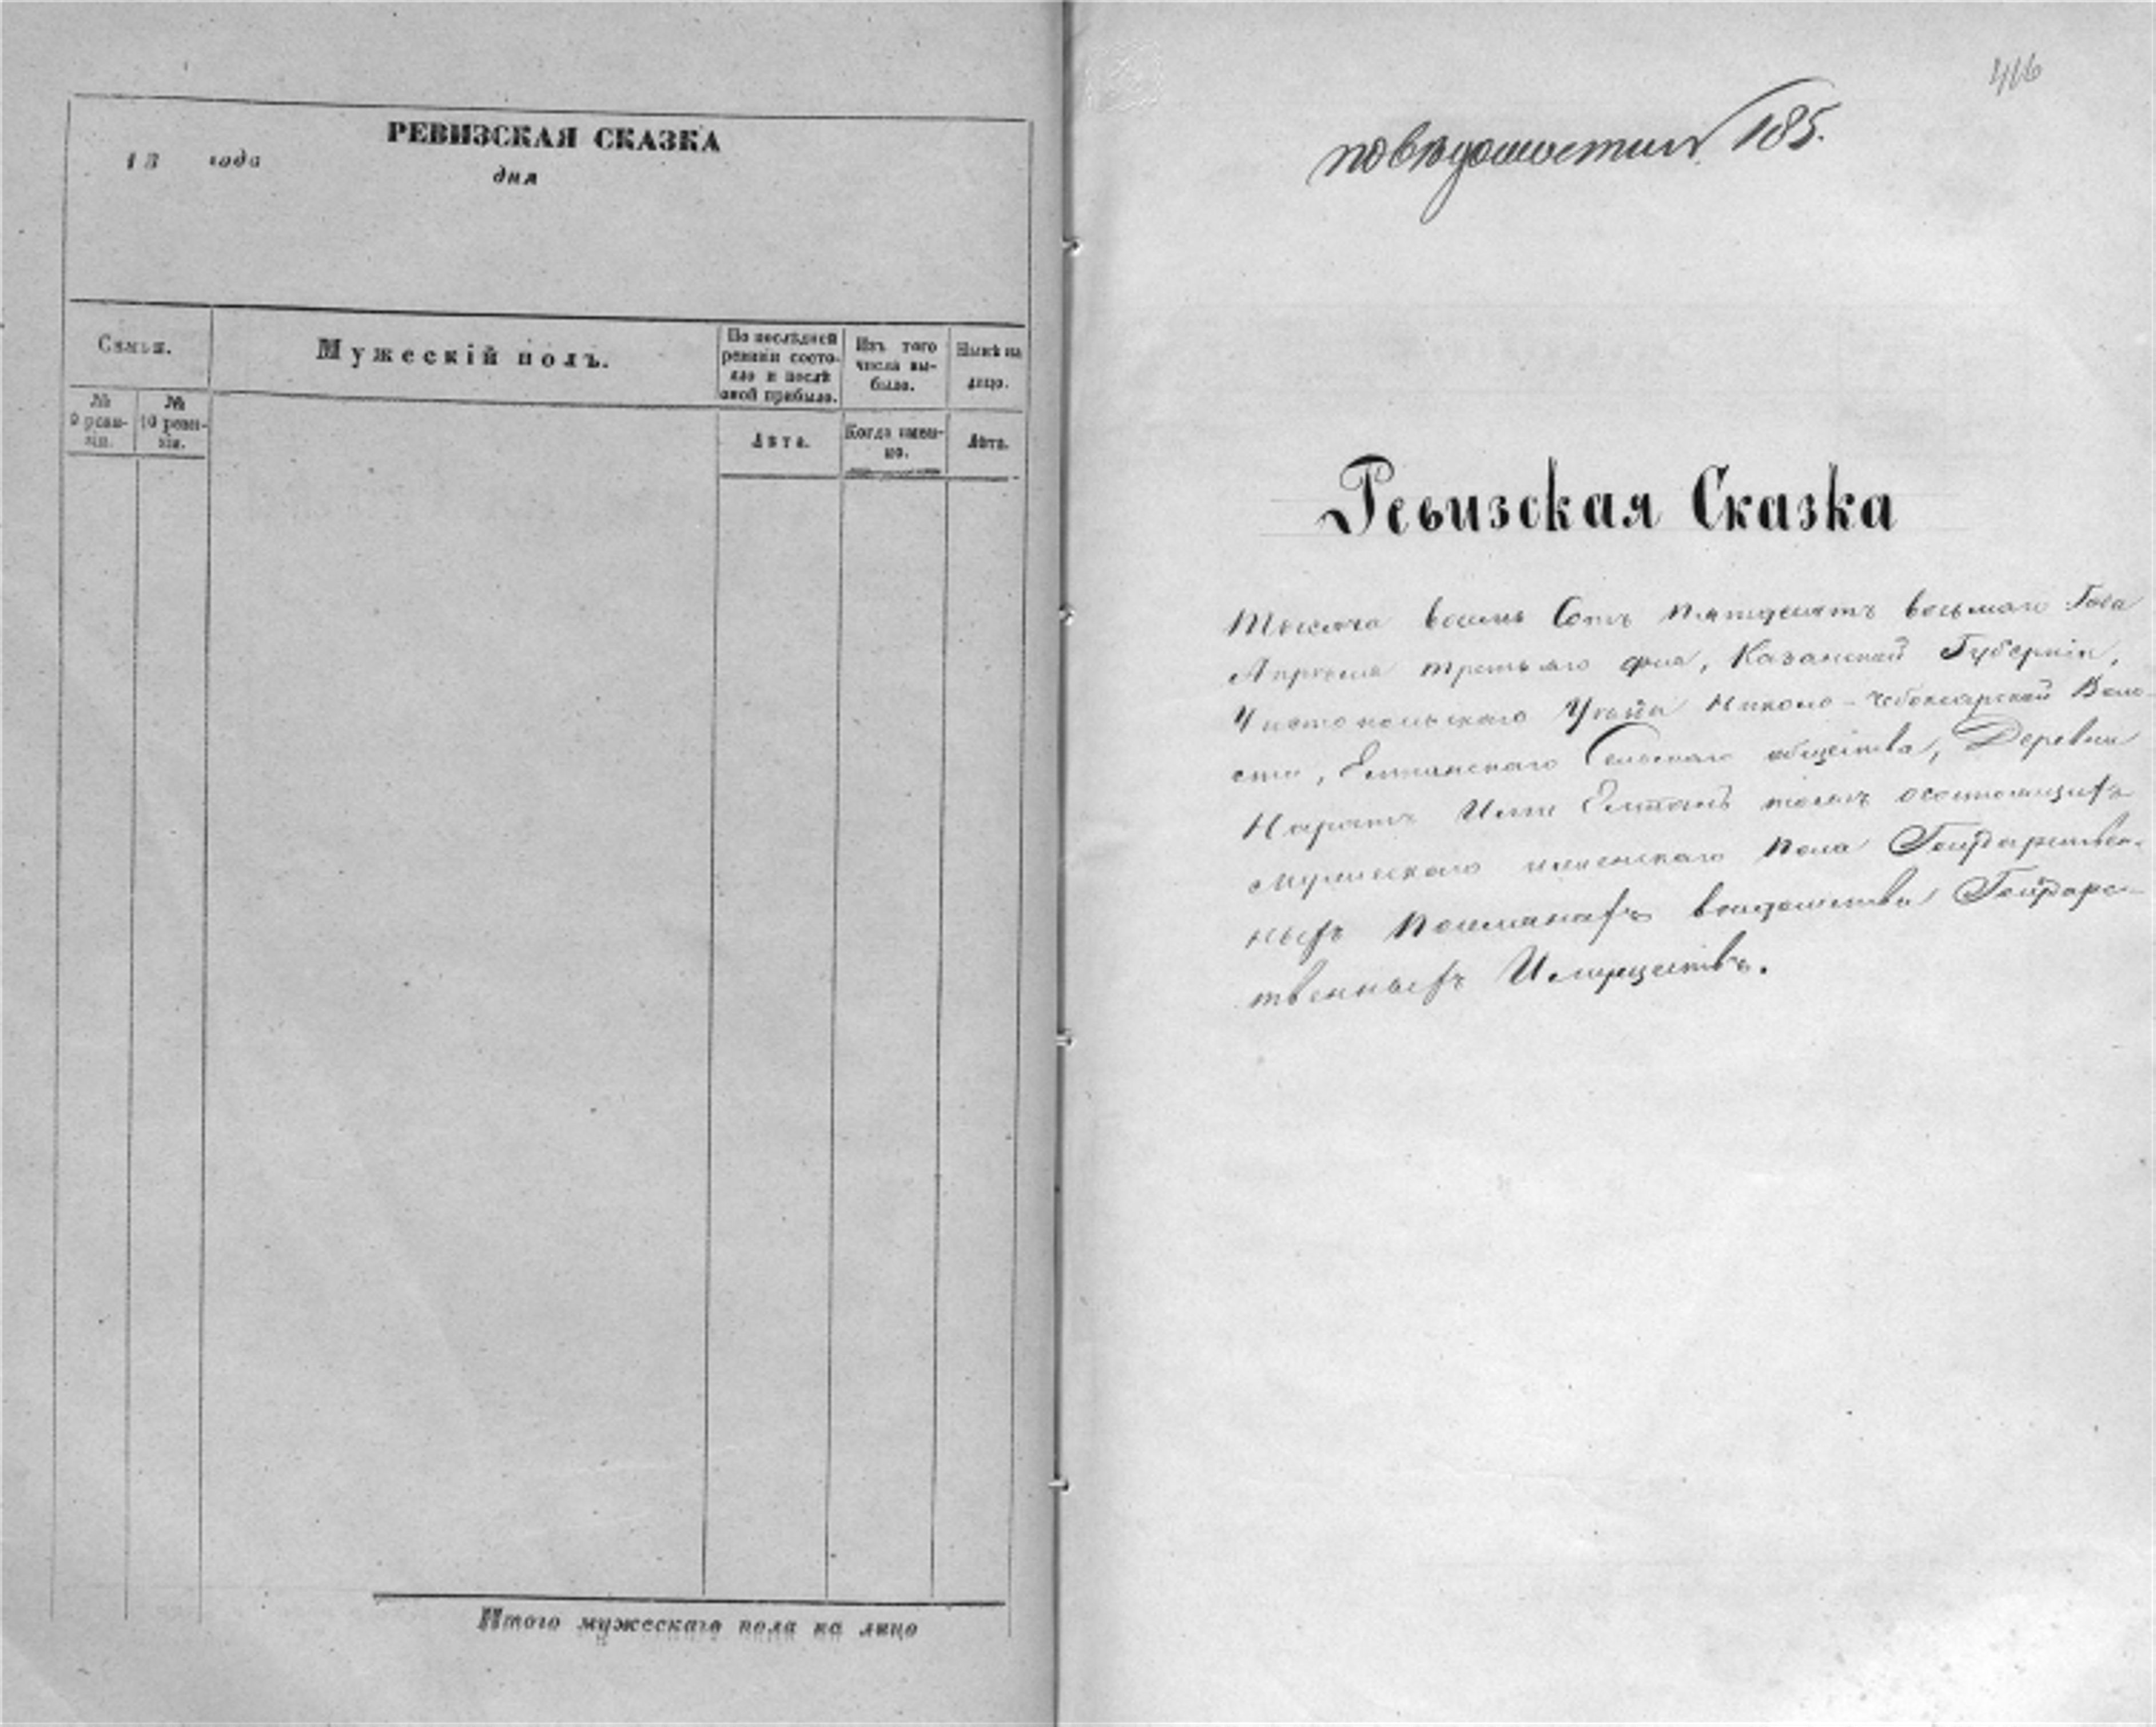 РЕВИЗСКАЯ СКАЗКА
18 года
дня
Семьи.
Мужескій полъ.
По послѣдней ревизіи состояло и послѣ оной прибыло.
Изъ того числа выбыло.
Нынѣ на лицо.
№ 9 ревизіи.
№ 10 ревизіи.
Лѣта.
Когда именно.
Лѣта.
Итого мужескаго пола на лицо
416
по вѣдомости 185.
Ревизская Сказка
Тысяча восемь Сотъ пятьдесятъ восьмаго Года
Апрѣля третьяго дня, Казанской Губерніи,
Чистопольскаго Уѣзда Николо-Чебоксарской Воло-
сти, Елтанскаго Сельскаго общества, Деревни
Наратъ Или Елтанъ тожъ о состоящихъ
мужескаго и женскаго пола Государствен-
ныхъ поселянахъ вѣдомства Государс-
твенныхъ Имуществъ.